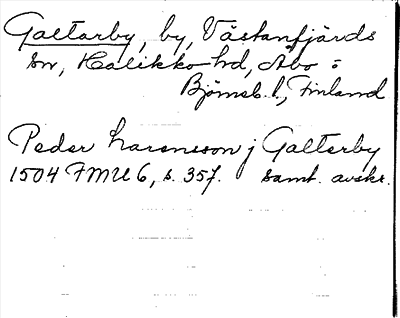 Galtarby, by, Västanfjärds
sn, Halikko hd, Åbo o
Björneb. l., Finland
Peder Larensson j Galterby
1504 FMU 6, s. 357. samt. avskr.